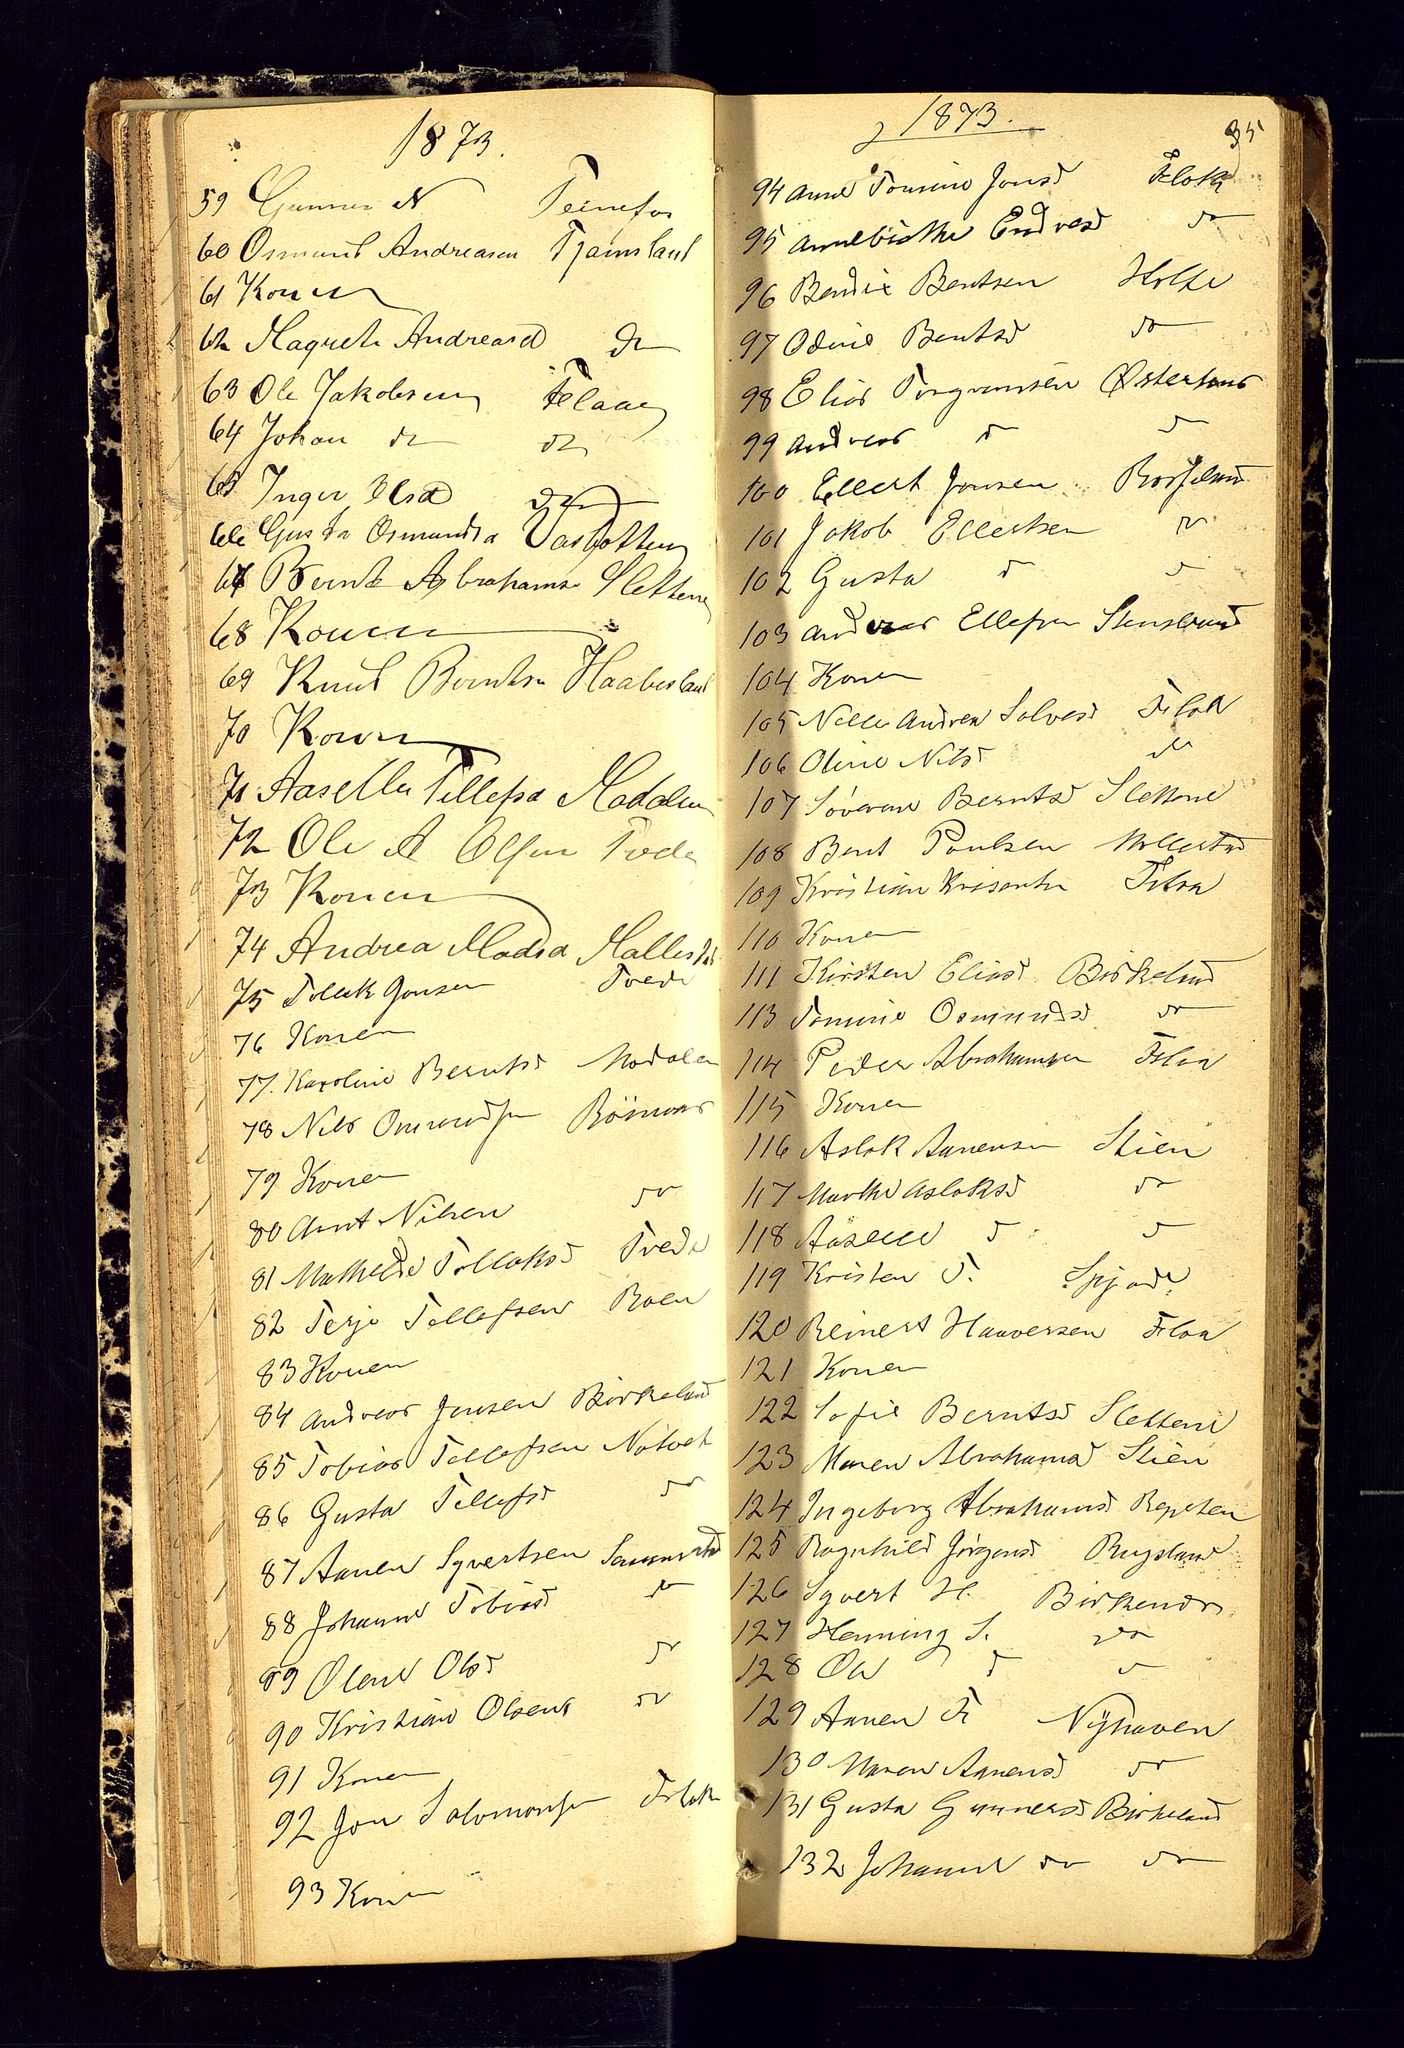 1873.
59 Gunner N Teinefos
60 Osmund Andreasen Tjomsland
61 Konen
62 Magrete Andreasd do
63 Ole Jakobsen Flaae
64 Johan do do
65 Inger Olsd do
66 Gusta Osmundsd Vasbotten
67 Bernt Abrahams Slettene
68 Konen
69 Knud Berntsen Haabesland
70 Konen
71 Aaselle Tellefsd Modalen
72 Ole A Olsen Tvede
73 Konen
74 Andrea Madsd Mollestad
75 Tollak Jonsen Tvede
76 Konen
77. Karoline Berntsd Modalen
78 Nils Osmundsen
79 Konen
80 Arnt Nilsen do
81 Mathilde Tollaksd Tvede
82 Terje Tellefsen Roen
83 Konen
84 Andreas Jensen Birkeland
85 Tobias Tellefsen
86 Gusta Tellefsd do
87 Aanen Syvertsen
88 Johanne Tobiasd do
89 Olene Olsd do
90 Kristian Olsens do
91 Konen
92 Jon Salomonsen Flak
93 Konen
1873.
35
94 Anne Tomine Jonsd Flak
95 Annebirthe Endresd do
96 Bendix Bentsen Holte
97 Odine Bentsd do
98 Elias Torgrimsen Østerhus
99 Andreas d d
100 Ellert Jonsen
101 Jakob Ellertsen do
102 Gusta d d
103 Andreas Ellefsen Stensland
104 Konen
105 Nille Andrea Solvesd Flaa
106 Oline Nilsd do
107 Søverene Berntsd Slettene
108 Bent Poulsen Mollestad
109 Kristian Flaa
110 Konen
111 Kirsten Eliasd Birkeland
113 Tomine Osmundsd do
114 Peder Abrahamsen Flaa
115 Konen
116 Aslak Aanensen Stien
117 Marthe Aslaksd do
118 Aaselle d d
119 Kristen T.
120 Reinert Haaversen Flaa
121 Konen
122 Sofie Berntsd Slettene
123 Maren Abrahamsd Stien
124 Ingeborg Abrahamsd Repsten
125 Ragnhild Jørgensd Rugsland
126 Syvert H.
127 Henning S. do
128 Ole d d
129 Aanen Nyhaven
130 Maren Aanensd do
131 Gusta Gunnersd Birkeland
132 Johanne do do